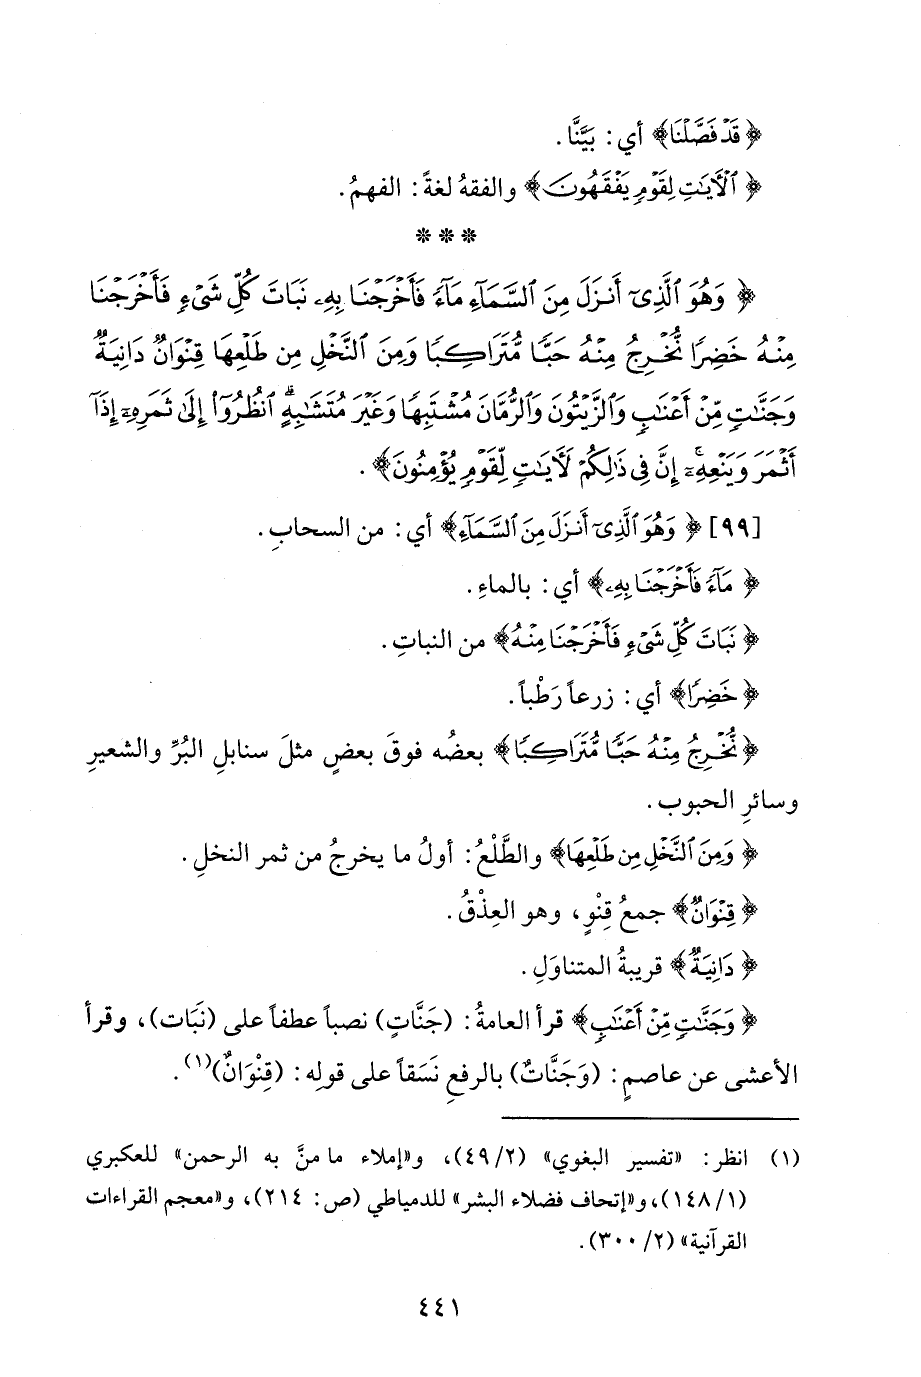 ﴿ قَدْ فَصَّلْنَا﴾ أي: بَيَّنَّا.
﴿ الْآيَاتِ لِقَوْمٍ يَفْقَهُونَ﴾ والفقهُ لغةً: الفهمُ.
* * *
﴿ وَهُوَ الَّذِي أَنزَلَ مِنَ السَّمَاءِ مَاءً فَأَخْرَجْنَا بِهِ نَبَاتَ كُلِّ شَيْءٍ فَأَخْرَجْنَا
مِنْهُ خَضِرًا نُّخْرِجُ مِنْهُ حَبًّا مُّتَرَاكِبًا وَمِنَ النَّخْلِ مِن طَلْعِهَا قِنْوَانٌ دَانِيَةٌ
وَجَنَّاتٍ مِّنْ أَعْنَابٍ وَالزَّيْتُونَ وَالرُّمَّانَ مُشْتَبِهًا وَغَيْرَ مُتَشَابِهٍ ۗ انظُرُوا إِلَىٰ ثَمَرِهِ إِذَا
أَثْمَرَ وَيَنْعِهِ ۚ إِنَّ فِي ذَٰلِكُمْ لَآيَاتٍ لِّقَوْمٍ يُؤْمِنُونَ﴾.
[٩٩] ﴿ وَهُوَ الَّذِي أَنزَلَ مِنَ السَّمَاءِ﴾ أي: من السحابِ.
﴿ مَاءً فَأَخْرَجْنَا بِهِ﴾ أي: بالماءِ.
﴿ نَبَاتَ كُلِّ شَيْءٍ فَأَخْرَجْنَا مِنْهُ﴾ من النباتِ.
﴿ خَضِرًا﴾ أي: زرعاً رَطْباً.
﴿ نُّخْرِجُ مِنْهُ حَبًّا مُّتَرَاكِبًا﴾ بعضُه فوقَ بعضٍ مثلَ سنابلِ البُرِّ والشعيرِ
وسائرِ الحبوب.
﴿ وَمِنَ النَّخْلِ مِن طَلْعِهَا﴾ والطَّلْعُ: أولُ ما يخرجُ من ثمر النخلِ.
﴿ قِنْوَانٌ﴾ جمعُ قِنْوٍ، وهو العِذْقُ.
﴿ دَانِيَةٌ﴾ قريبةُ المتناوَلِ.
﴿ وَجَنَّاتٍ مِّنْ أَعْنَابٍ﴾ قرأ العامةُ: (جَنَّاتٍ) نصباً عطفاً على (نَبَات)، وقرأ
الأعشى عن عاصمٍ: (وَجَنَّاتٌ) بالرفعِ نَسَقاً على قولِه: (قِنْوَانٌ)(١).
(١) انظر: «تفسير البغوي» (٤٩/٢)، و«إملاء ما منَّ به الرحمن» للعكبري
(١٤٨/١)، و«إتحاف فضلاء البشر» للدمياطي (ص: ٢١٤)، و«معجم القراءات
القرآنية» (٣٠٠/٢).
٤٤١